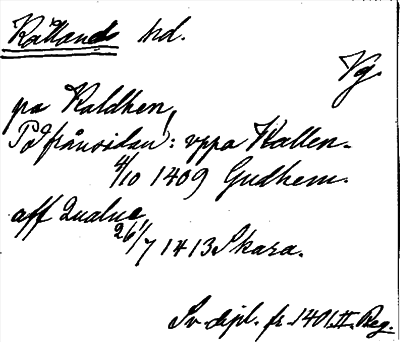 Kållands hd.
Vg.
pa Kaldhen,
På frånsidan: vppa Kallen.
4/10 1409 Gudhem.
aff Qualne
26/7 1413 Skara.
Sv. dipl. fr. 1401. II. Reg.